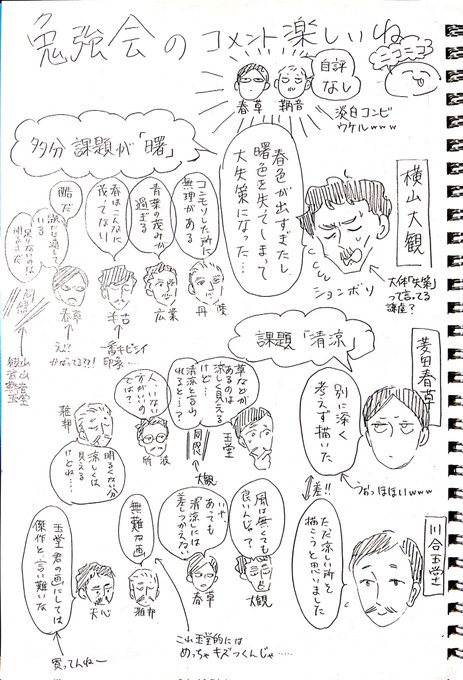 勉強会のコメント楽しいね
ニコニコ
自評
なし
春草
鞆音
淡白コンビ
ウケルwww
多分 課題が「曙」
春色が出すぎたし
曙色を失てしまって
大失策になった…
横山大観
ションボリ
大体「失策」
って言ってる
課題?
コニモソした所に
無理がある
青葉の茂みが
過ぎる
春はこんなに
茂ってない
酷だ
春草
え?!
かばってる??!
未古
一番キビシイ
印象…
広業
丹陵
観山
玉堂
課題「清涼」
菱田春草
別に深く
考えず描いた
つめっほほいwww
差!!
川合玉堂
ただ涼しい所を
描こうと思いました
草などが
あるのは
涼しく見える
けど…
清涼と言
れると…?
玉堂
同感
大観
人、いない
方がいいの
では?
雅邦
明るくない分
涼しくは
見える
けどね…
風は無くても
良いんじゃ?
大観
いや、
あっても
清涼には
差つかえない
春草
無難な画
雅邦
玉堂君の画にしては
傑作と言い難いな
天心
買ってんねー
これ玉堂的には
めっちゃキズつくんじゃ……